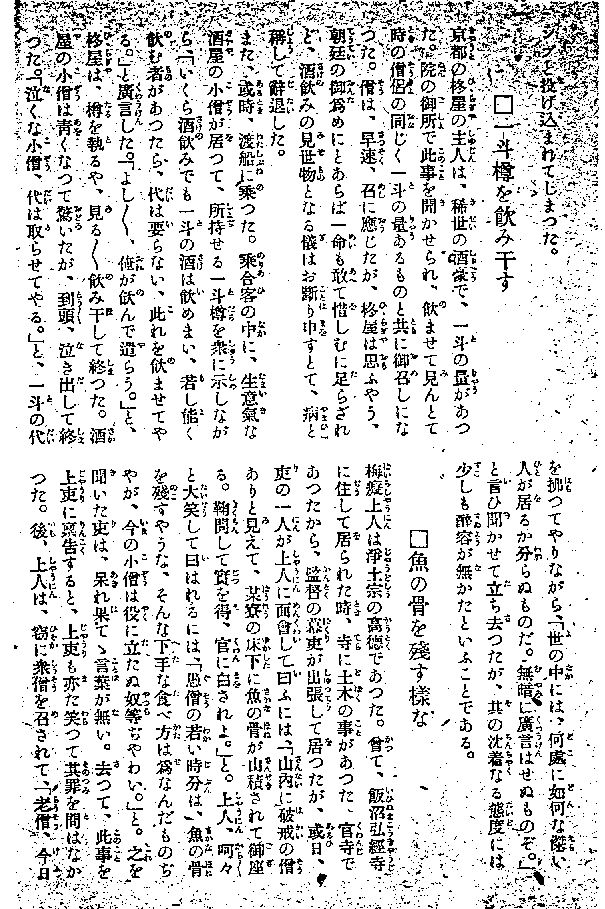 ンブと投げ込まれてしまつた。
□一斗樽を飲み干す
京都の柊屋の主人は、稀世の酒豪で、一斗の量があつ
た。院の御所で此事を聞かせられ、飲ませて見んとて
時の僧侶の同じく一斗の量あるものと共に御召しにな
つた。僧は、早速、召に應じたが、柊屋は思ふやう、
朝廷の御爲めにとあらば一命も敢て惜しむに足らざれ
ど、酒飲みの見世物となる儀はお斷り申すとて、病と
稱して辭退した。
また、或時、渡船に乘つた。乘合客の中に、生意氣な
酒屋の小僧が居つて、所持せる一斗樽を衆に示しなが
ら、「いくら酒飲みでも一斗の酒は飲めまい、若し能く
飲む者があつたら、代は要らない、此れを飲ませてや
る。」と廣言した。「よし〳〵、俺が飲んで遣らう。」と、
柊屋は、樽を執るや、見る〳〵飲み干して終つた。酒
屋の小僧は靑くなつて驚いたが、到頭、泣き出して終
つた。「泣くな小僧、代は取らせてやる。」と、一斗の代
を拂つてやりながら、「世の中には、何處に如何な偉い
人が居るか分らぬものだ。無暗に廣言はせぬものぞ。」
と言ひ聞かせて立ち去つたが、其の沈着なる態度には
少しも醉容が無かたといふことである。
□魚の骨を殘す樣な
梅癡上人は淨土宗の高德であつた。曾て、飯沼弘經寺
に住して居られた時、寺に土木の事があつた、官寺で
あつたから、監督の幕吏が出張して居つたが、或日、
吏の一人が上人に面會して曰ふには、「山內に破戒の僧
ありと見えて、某寮の床下に魚の骨が山積されて御座
る。鞠問して實を得、官に白されよ。」と。上人、呵々
と大笑して曰はれるには、「愚僧の若い時分は、魚の骨
を殘すやうな、そんな下手な食べ方は爲なんだものぢ
やが、今の小僧は役に立たぬ奴等ぢやわい。」と。之を
聞いた吏は、呆れ果てゝ言葉が無い。去つて、此事を
上吏に稟告すると、上吏も亦た笑つて其罪を問はなか
つた。後、上人は、窃に衆僧を召されて、「老僧、今日